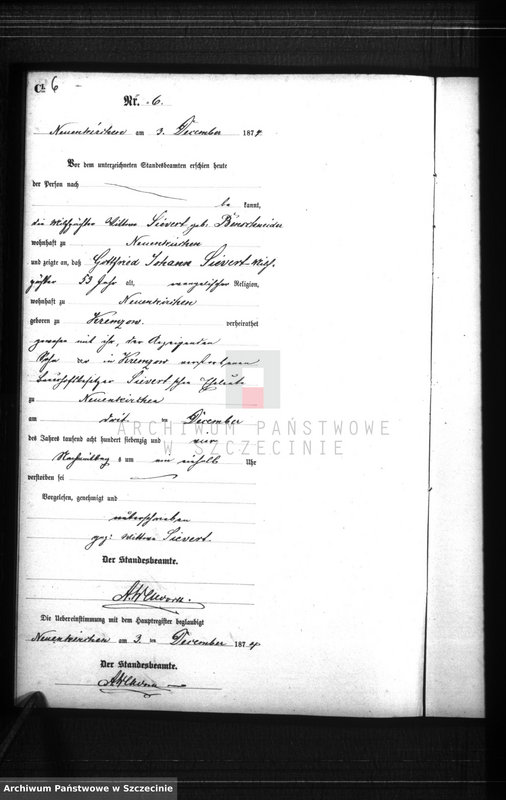 C. 6
Nr. 6.
Neuenkirchen am 3. December 1874.
Vor dem unterzeichneten Standesbeamten erschien heute
der Person nach
be kannt,
die Milchpächter Wittwe Sievert geb.
wohnhaft zu Neuenkirchen
und zeigte an, daß Gottfried Johann Sievert
pächter 53 Jahr alt, evangelischer Religion,
wohnhaft zu Neuenkirchen
geboren zu Kremzow. verheirathet
gewesen mit ihr, der Anzeigenden
Sohn der in Kremzow verstorbenen
Sievert'schen Eheleute
zu Neuenkirchen
am December
des Jahres tausend acht hundert siebenzig und vier
Nachmittag s um ein einhalb Uhr
verstorben sei
Vorgelesen, genehmigt und
unterschrieben
gez: Wittwe Sievert.
Der Standesbeamte.
Die Uebereinstimmung mit dem Hauptregister beglaubigt
Neuenkirchen am 3. ten December 1874
Der Standesbeamte.
ARCHIWUM PAŃSTWOWE
W SZCZECINIE
Archiwum Państwowe w Szczecinie